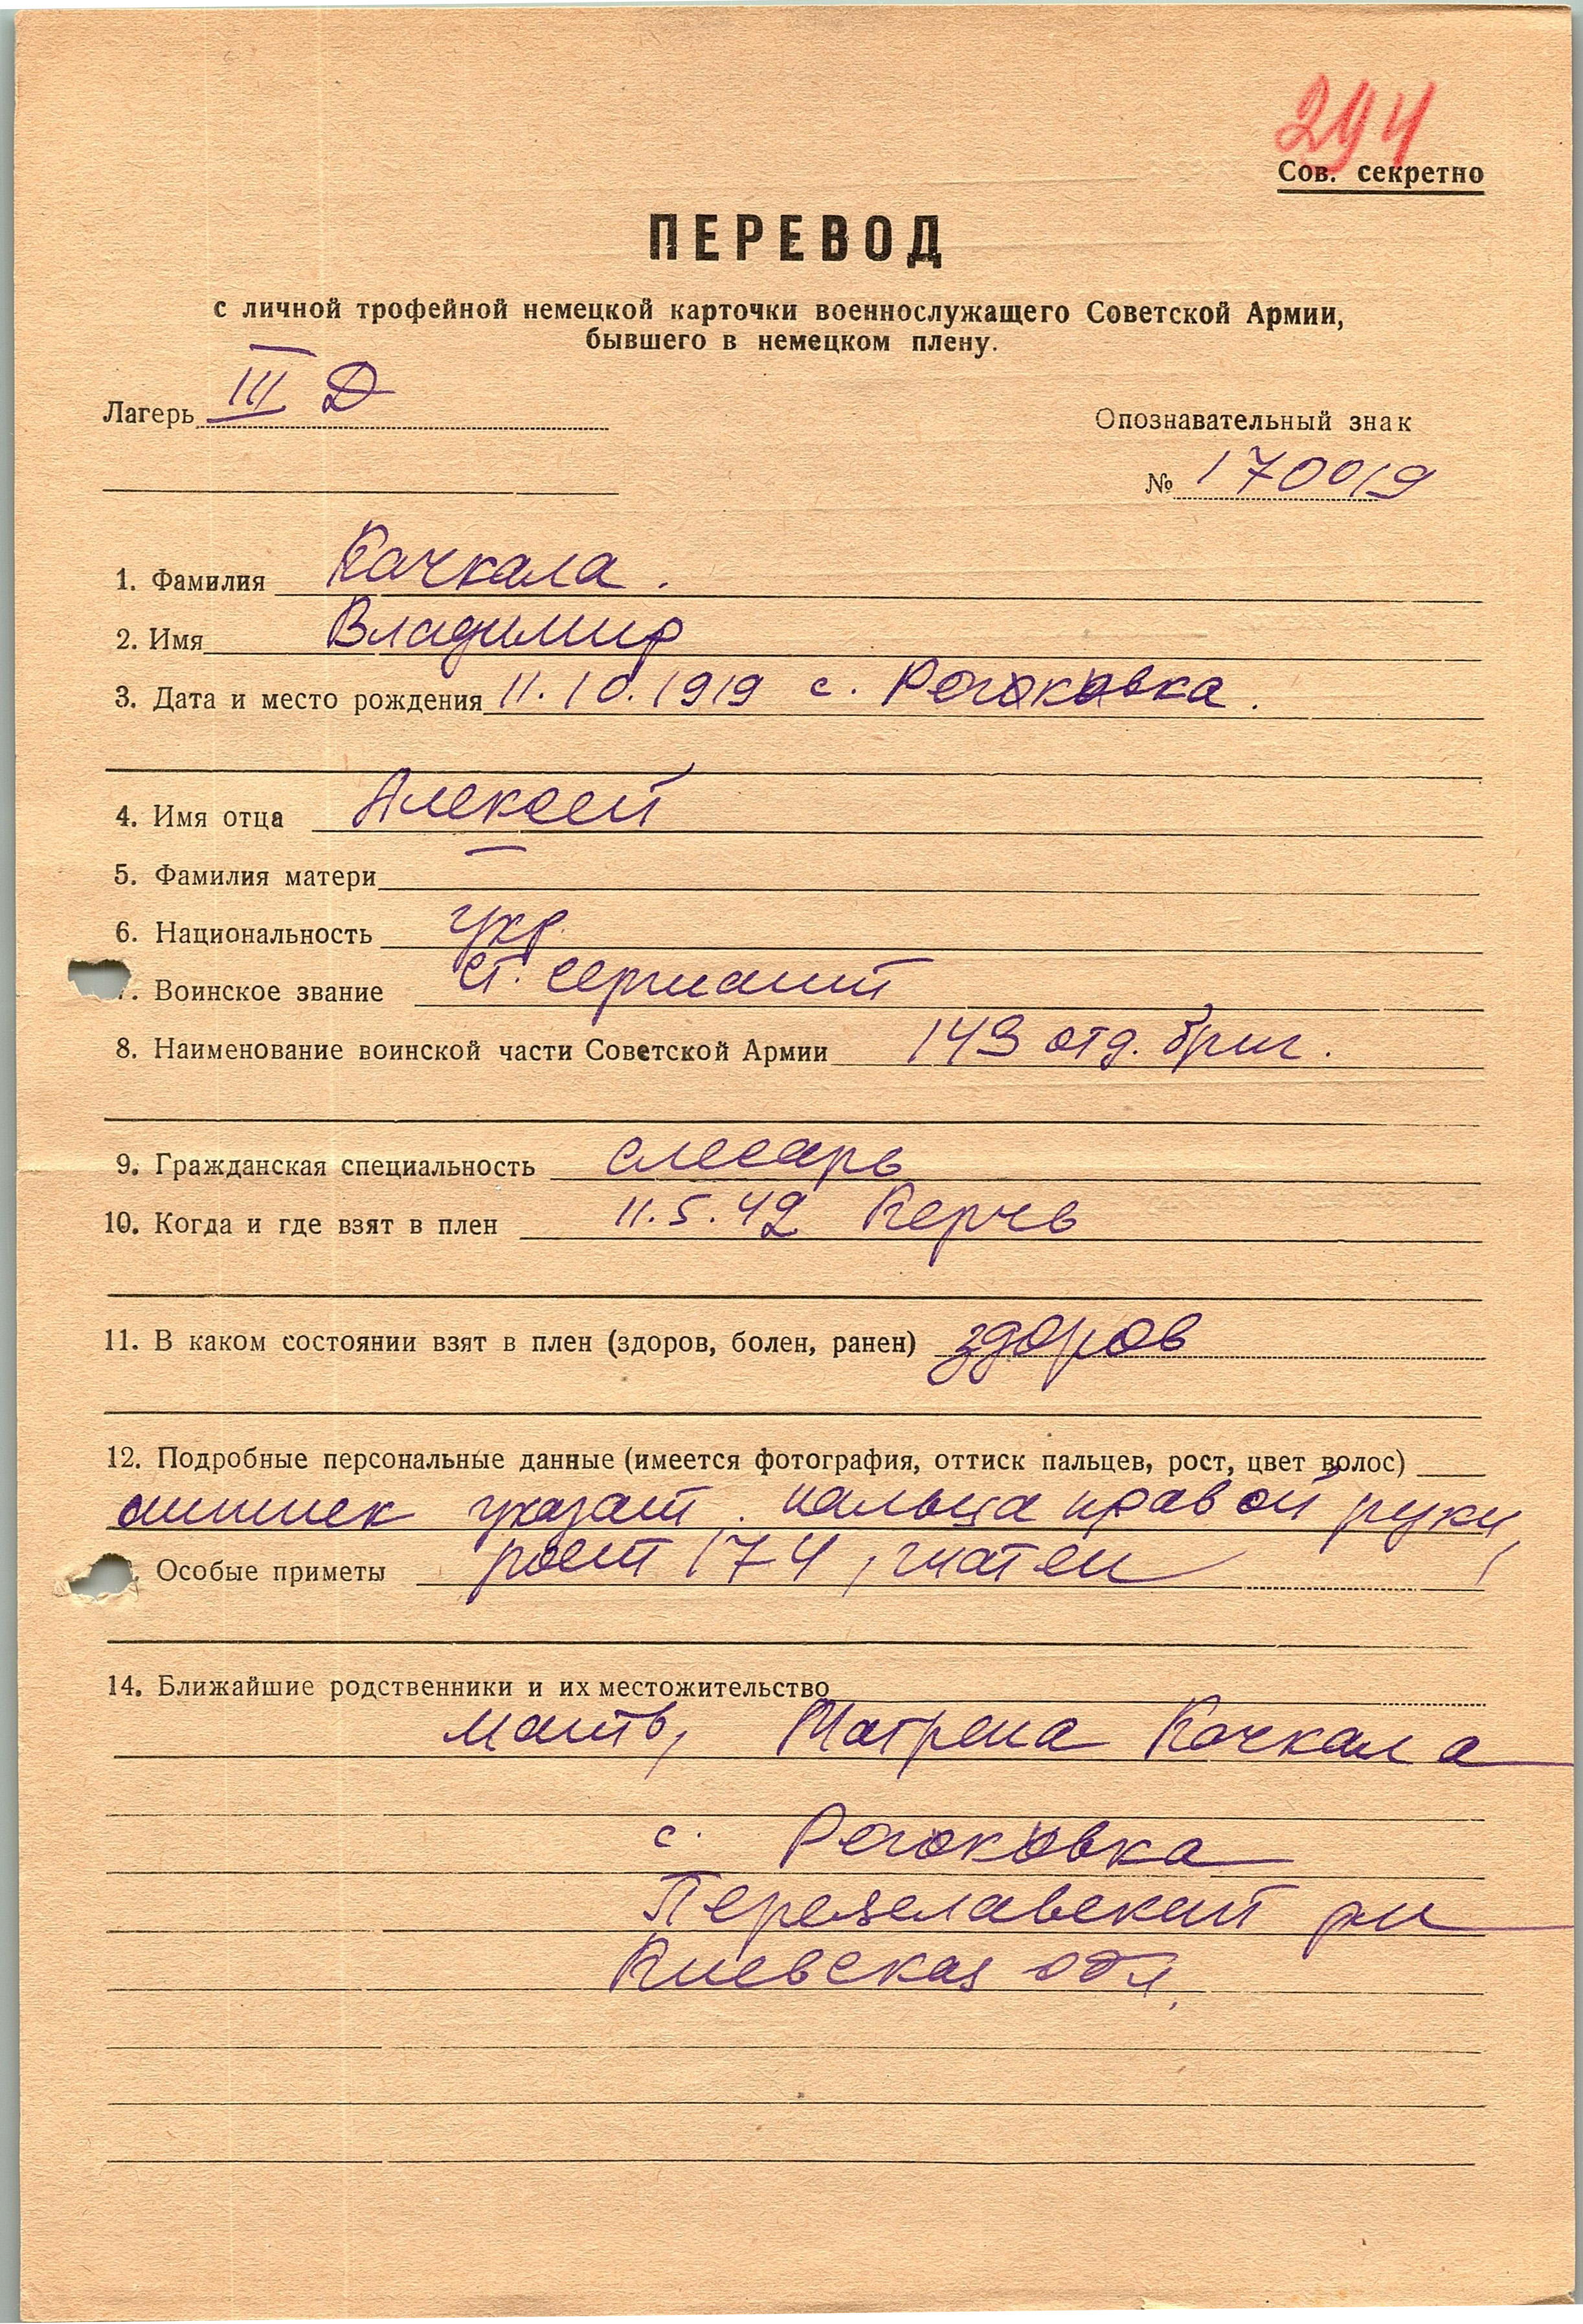 294
Сов. секретно
ПЕРЕВОД
с личной трофейной немецкой карточки военнослужащего Советской Армии,
бывшего в немецком плену.
Лагерь III Д
Опознавательный знак
№ 170019
1. Фамилия Качкала.
2. Имя Владимир
3. Дата и место рождения 11.10.1919 с.
4. Имя отца Алексей
5. Фамилия матери —
6. Национальность укр.
7. Воинское звание ст. сержант
8. Наименование воинской части Советской Армии 143 отд. бриг.
9. Гражданская специальность слесарь
10. Когда и где взят в плен 11.5.42 Керчь
11. В каком состоянии взят в плен (здоров, болен, ранен) здоров
12. Подробные персональные данные (имеется фотография, оттиск пальцев, рост, цвет волос)
оттиск указат. пальца правой руки,
Особые приметы рост 174, шатен
14. Ближайшие родственники и их местожительство
мать, Матрена Качкала
с.
р-н
Киевская обл.